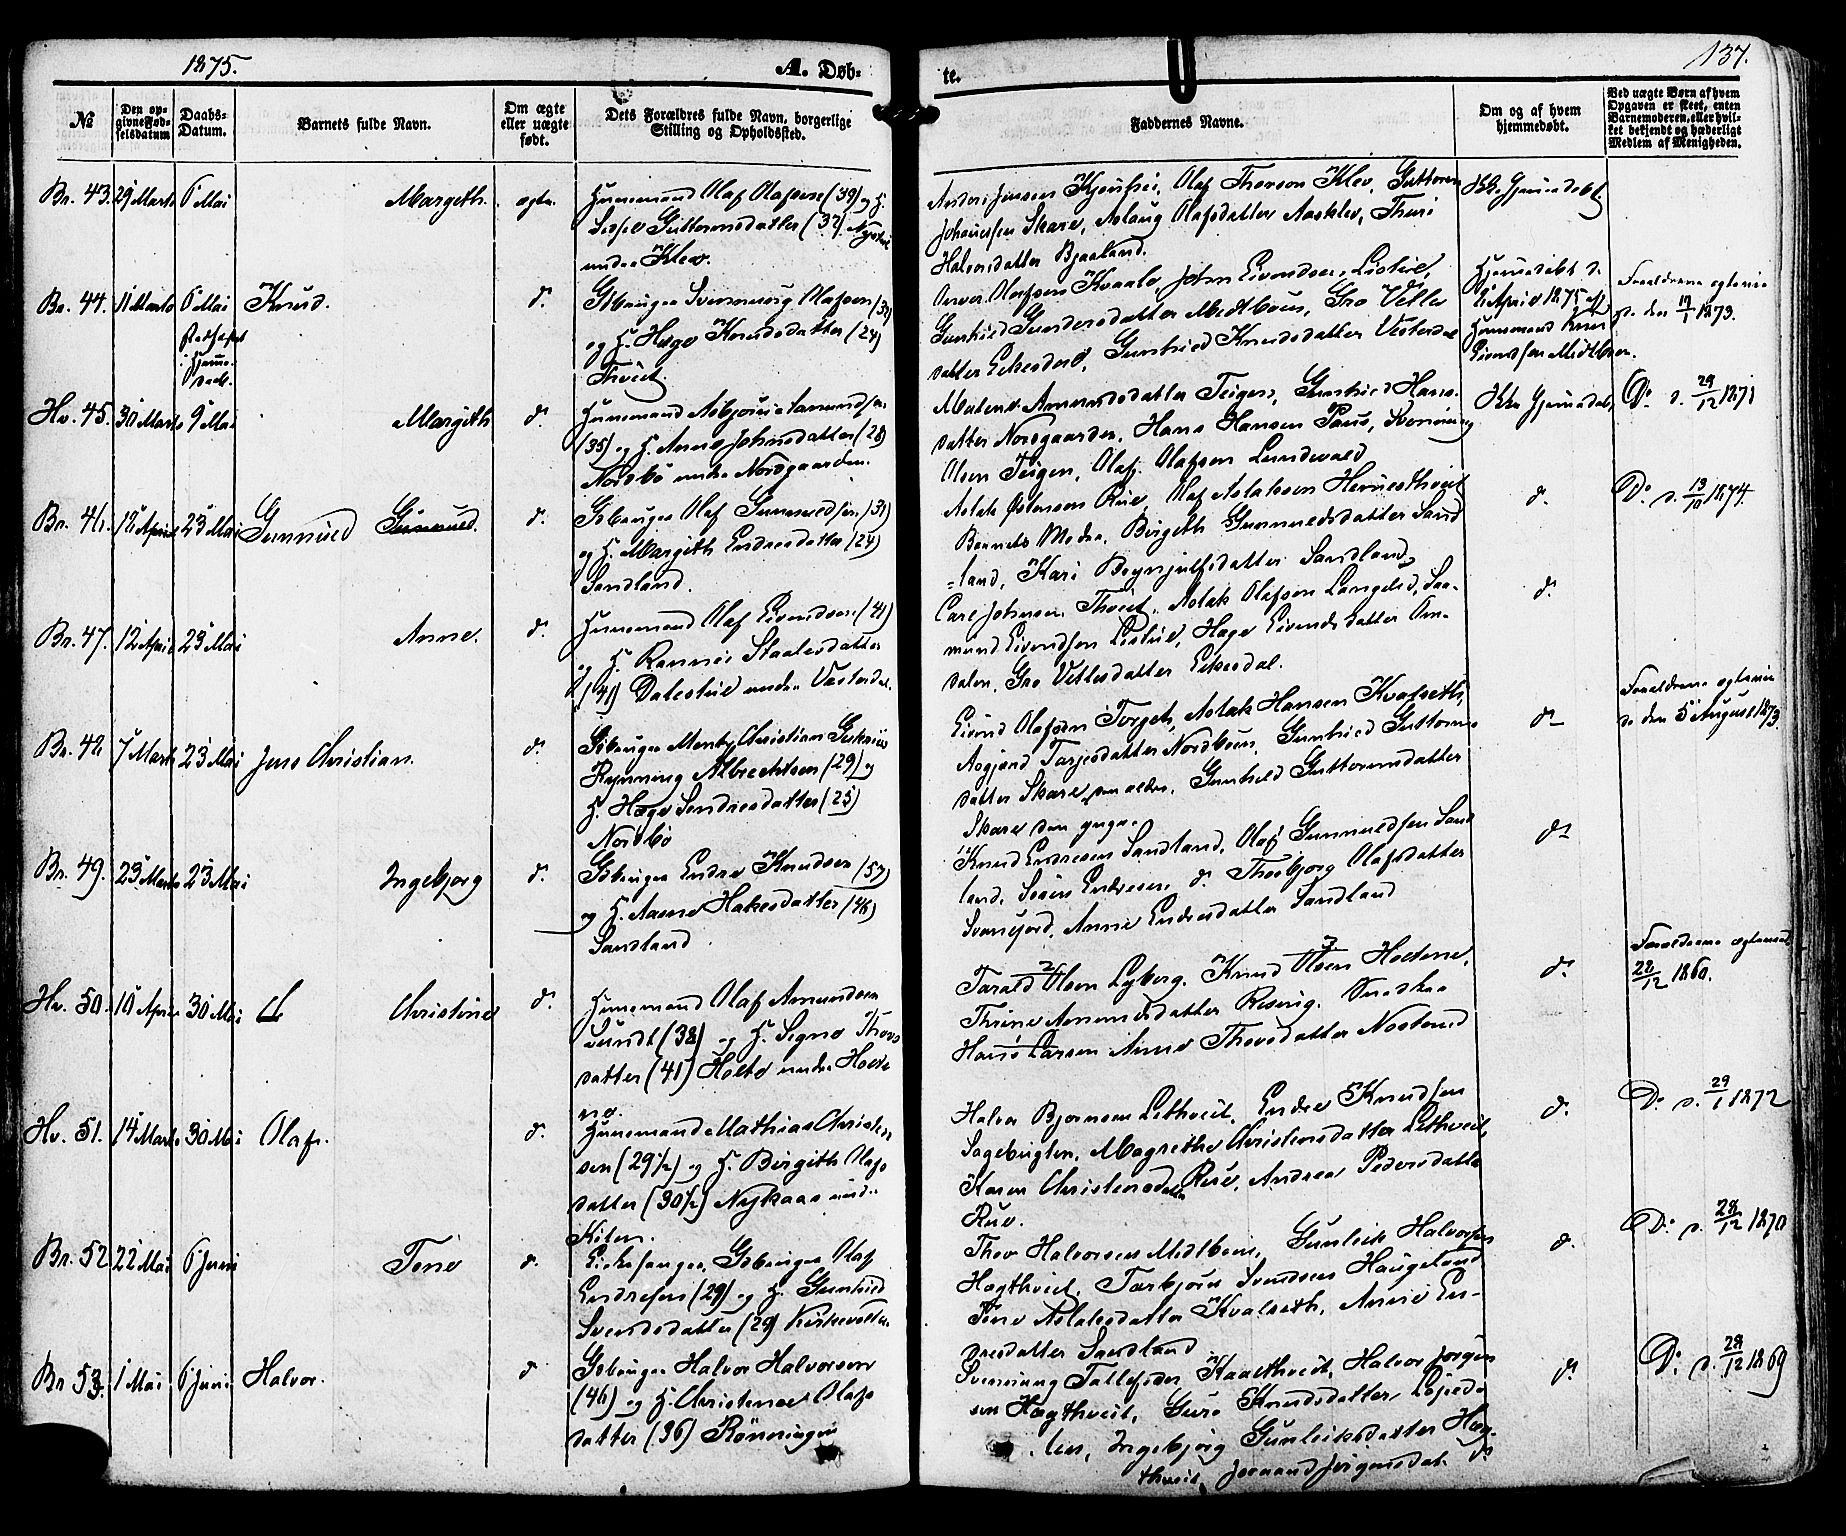 1875.
A. Døb-
te.
137.
№
Den op-
givne Fød-
selsdatum
Daabs-
Datum.
Barnets fulde Navn.
Om ægte
eller uægte
født.
Dets Forældres fulde Navn, borgerlige
Stilling og Opholdssted.
Faddernes Navne.
Om og af hvem
hjemmedøbt.
Ved uægte Børn af hvem
Opgaven er skeet, enten
Barnemoderen, eller hvil-
ket bekjendt og hæderligt
Medlem af Menigheden.
Br. 43. 29 Marts 6 Mai Margeth. ægte.
Huusmand Olaf Olafsen (39) og H.
Guttormsdatter (37)
under Klev.
Olaf Thorson Klev, Guttorm
Skare, Aslaug Olafsdatter Aasklev, Thuri
Halvorsdatter Bjaaland.
Br. 44. 11 Marts 6 Mai Knud. d.
Gbruger Svennung Olafsen (37)
og H. Hæge Knudsdatter (24)
Thveit.
Olafsen Kvaale, John Eivendsen
Gunhild Gundersdatter Midtbøen, Gro Vetle
datter Eikesdal, Gunhild Knudsdatter Vesterdal
Hjemmedøbt d.
April 1875 af
Huusmand
Eivendsen Midtbøen.
Forældrene
den 17/1 1873.
Hv. 45. 30 Marts 9 Mai Margith d.
Huusmand Asbjørn Amundsen
(35) og H. Anne Johnsdatter (28)
Nordbø under Nordgaarden.
Amundsdatter Teigen, Gunhild Hans-
datter Nordgaarden, Hans Hansen Paus,
Olsen Teigen, Olaf Olafsen Lundevald
Do. d. 29/12 1871
Br. 46. 18 April 23 Mai Gunnuld Gunnuld. d.
Gbruger Olaf Gunnuldsen (31)
og H. Margith Endresdatter (24)
Sandland.
Aslak Østensen Rue, Olaf Aslaksen
Barnets Moder, Birgith Gunnuldsdatter Sand
-land, Kari Brynjulfsdatter Sandland
d.
Do. d. 13/10 1874.
Br. 47. 12 April 23 Mai Anne. d.
Huusmand Olaf Eivendsen (41)
og H. Rannei Staalesdatter
(41) Dalestul under Vesterdal.
Carl Johnsen Thveit, Aslak Olafsen Langelid, Aa-
mund Eivendsen, Hæge Eivendsdatter Om-
dalen, Gro Vetlesdatter Eikesdal.
d.
Br. 48 7 Marts 23 Mai Jens Christian. d.
Gbruger Christian
Rynning Albrechtsen (29) og
H. Hæge Sondresdatter (25)
Nordbø
Eivind Olafsen Torget, Aslak Hansen Kvalseth,
Aagjønd Tarjesdatter Nordbøen, Gunhild Guttorms
datter Skare den ældre, Gunhild Guttormsdatter
Skare den yngre
d.
Forældrene
den 5 August 1873.
Br. 49. 23 Marts 23 Mai Ingebjorg d.
Gbruger Endre Knudsen (57)
og H. Aasne Hakesdatter (46)
Sandland
Knud Endresen Sandland, Olaf Gunnuldsen Sand
land, Søren Endresen d. Thorbjorg Olafsdatter
Anne Endresdatter Sandland
d.
Hv. 50. 10 April 30 Mai Christine d.
Huusmand Olaf Amundsen
Lundt (38) og H. Signe Thors
datter (41) Holte under Hode
ne.
Tarald Olsen Lyborg, Knud Olsen Hodene,
Thrine Amundsdatter Snedker
Hans Larsen Anne Thorsdatter
d.
Forældrene
28/12 1860.
Hv. 51. 14 Marts 30 Mai Olaf. d.
Huusmand Mathias Christen
sen (29½) og H. Birgith Olafs
datter (30½) Nykaas under
Kilen.
Halvor Bjornsen Lithveit, Endre Knudsen
Sagebugten, Magrethe Christensdatter Lithveit,
Karen Christensdatter Rue, Andrea Pedersdatter
Rue.
d.
Do. d. 29/1 1872
Br. 52. 22 Mai 6 Juni Tone d.
Kirkesanger, Gbruger Olaf
Endresen (29) og H. Gunhild
Svendsdatter (29) Kirkevolden.
Thov Halvorsen Midtbøen, Gunleik Halvorsen
Hægthveit, Torbjorn Svendsen Haugeland
Tone Aslaksdatter Kvalseth, Anne En-
dresdatter Sandland
d.
Do. d. 28/12 1870
Br. 53. 1 Mai 6 Juni Halvor. d
Gbruger Halvor Halvorsen
(46) og H. Christense Olafs
datter (36) Rønningen
Svennung Tallefsen Kaasthveit, Halvor Jørgen
sen Hægthveit, Guro Knudsdatter
Ingebjørg Gunleiksdatter Hæg-
thveit,
d.
Do. d. 28/12 1869